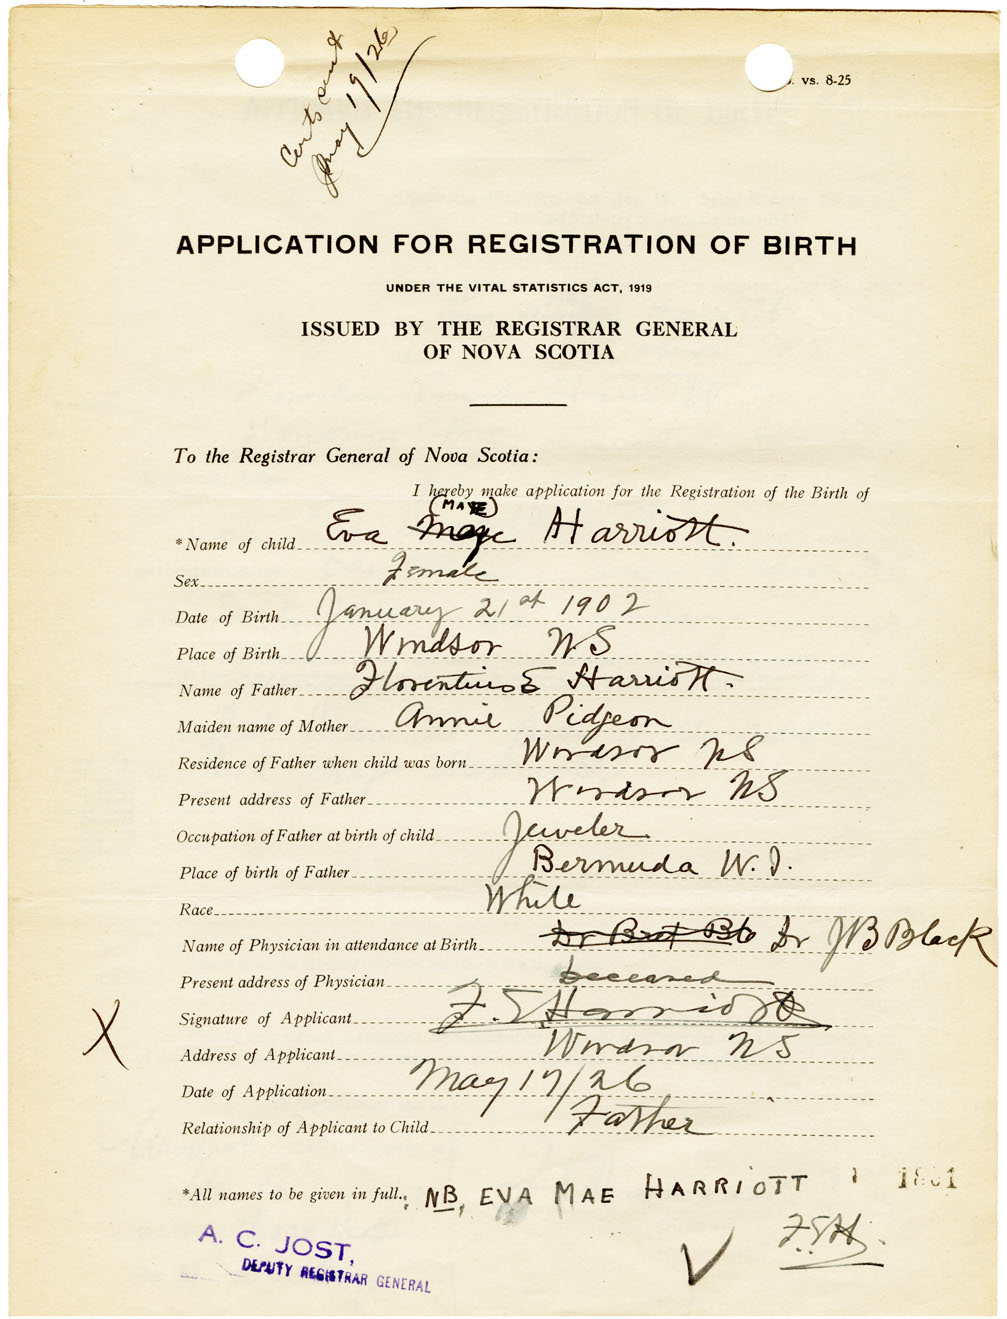 Certs sent
May 19/26
. vs. 8-25
APPLICATION FOR REGISTRATION OF BIRTH
UNDER THE VITAL STATISTICS ACT, 1919
ISSUED BY THE REGISTRAR GENERAL
OF NOVA SCOTIA
To the Registrar General of Nova Scotia:
I hereby make application for the Registration of the Birth of
(MAE)
*Name of child Eva Harriott.
Sex Female
Date of Birth January 21st 1902
Place of Birth Windsor NS
Name of Father Florentius E Harriott.
Maiden name of Mother Annie Pidgeon
Residence of Father when child was born Windsor NS
Present address of Father Windsor NS
Occupation of Father at birth of child Jeweler
Place of birth of Father Bermuda W.I.
Race White
Name of Physician in attendance at Birth Dr JB Black
Present address of Physician Deceased
Signature of Applicant F. E. Harriott
X
Address of Applicant Windsor NS
Date of Application May 17/26
Relationship of Applicant to Child Father
*All names to be given in full. NB, EVA MAE HARRIOTT
F.E.H.
A. C. JOST,
DEPUTY REGISTRAR GENERAL